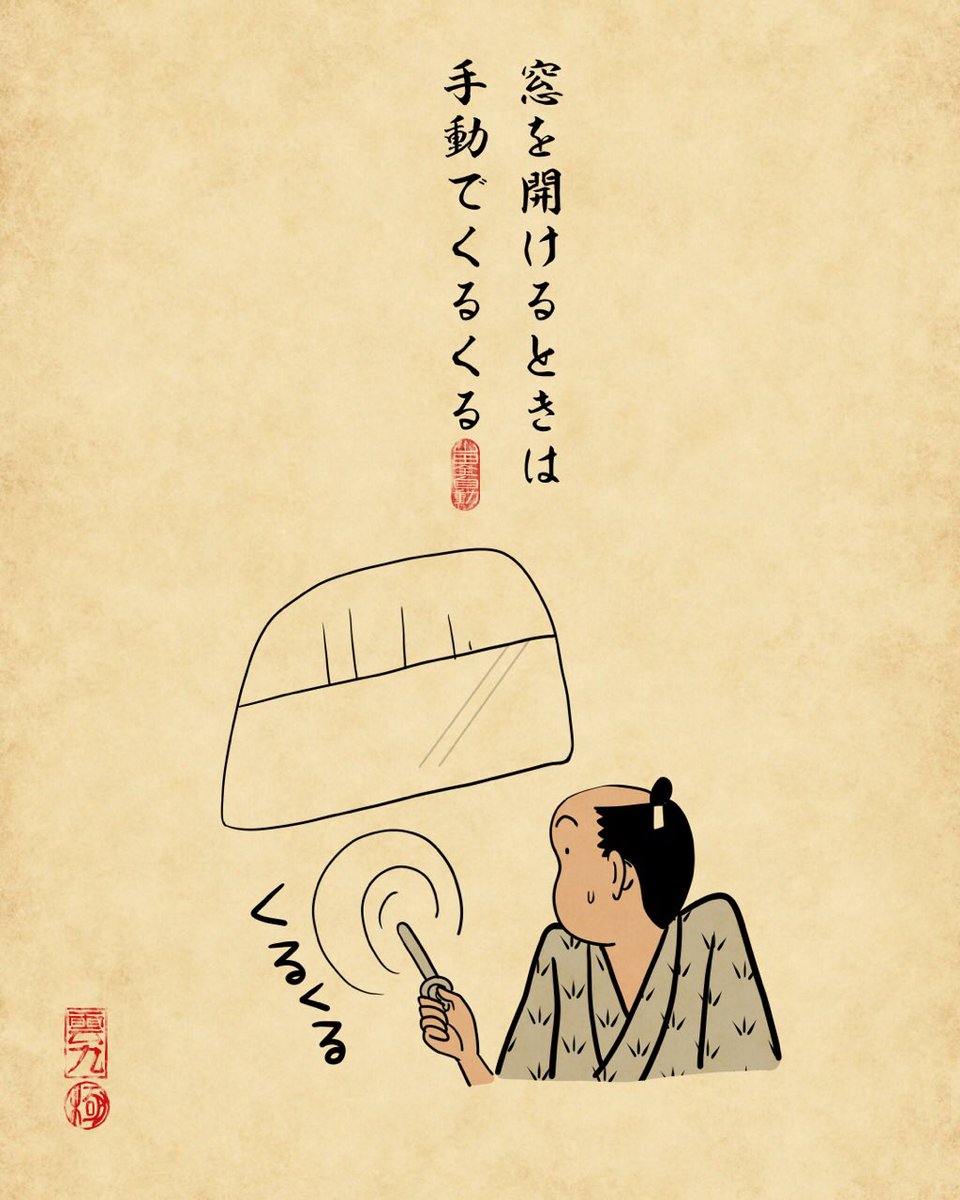 窓を開けるときは
手動でくるくる
くるくる
雲九
極